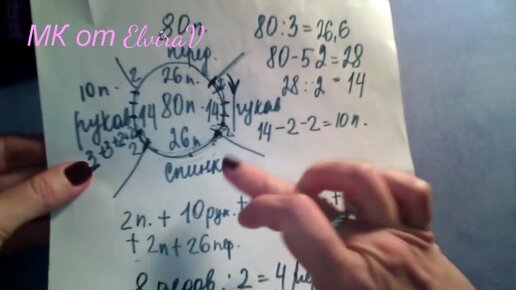 МК от ElviraV
80п.
перед.
26п.
2
2
10п.
рукав
14
80п.
14
рукав
2
2
26п
3+3+2+2
спинка
80:3=26,6
80-52=28
28:2=14
14-2-2=10п.
2п.+10рук.+
+2п+26пер.
8 рядов:2=4